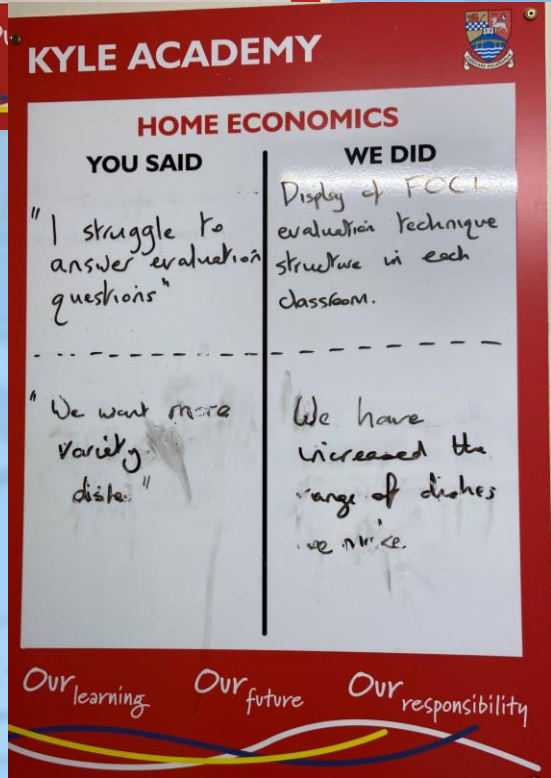 KYLE ACADEMY
HOME ECONOMICS
YOU SAID
"I struggle to
answer evaluation
questions"
"We want more
variety
WE DID
Display of FOCL
evaluation technique
structure in each
classroom.
We have
increased the
range of dishes
we make.
Our learning
Our future
Our responsibility